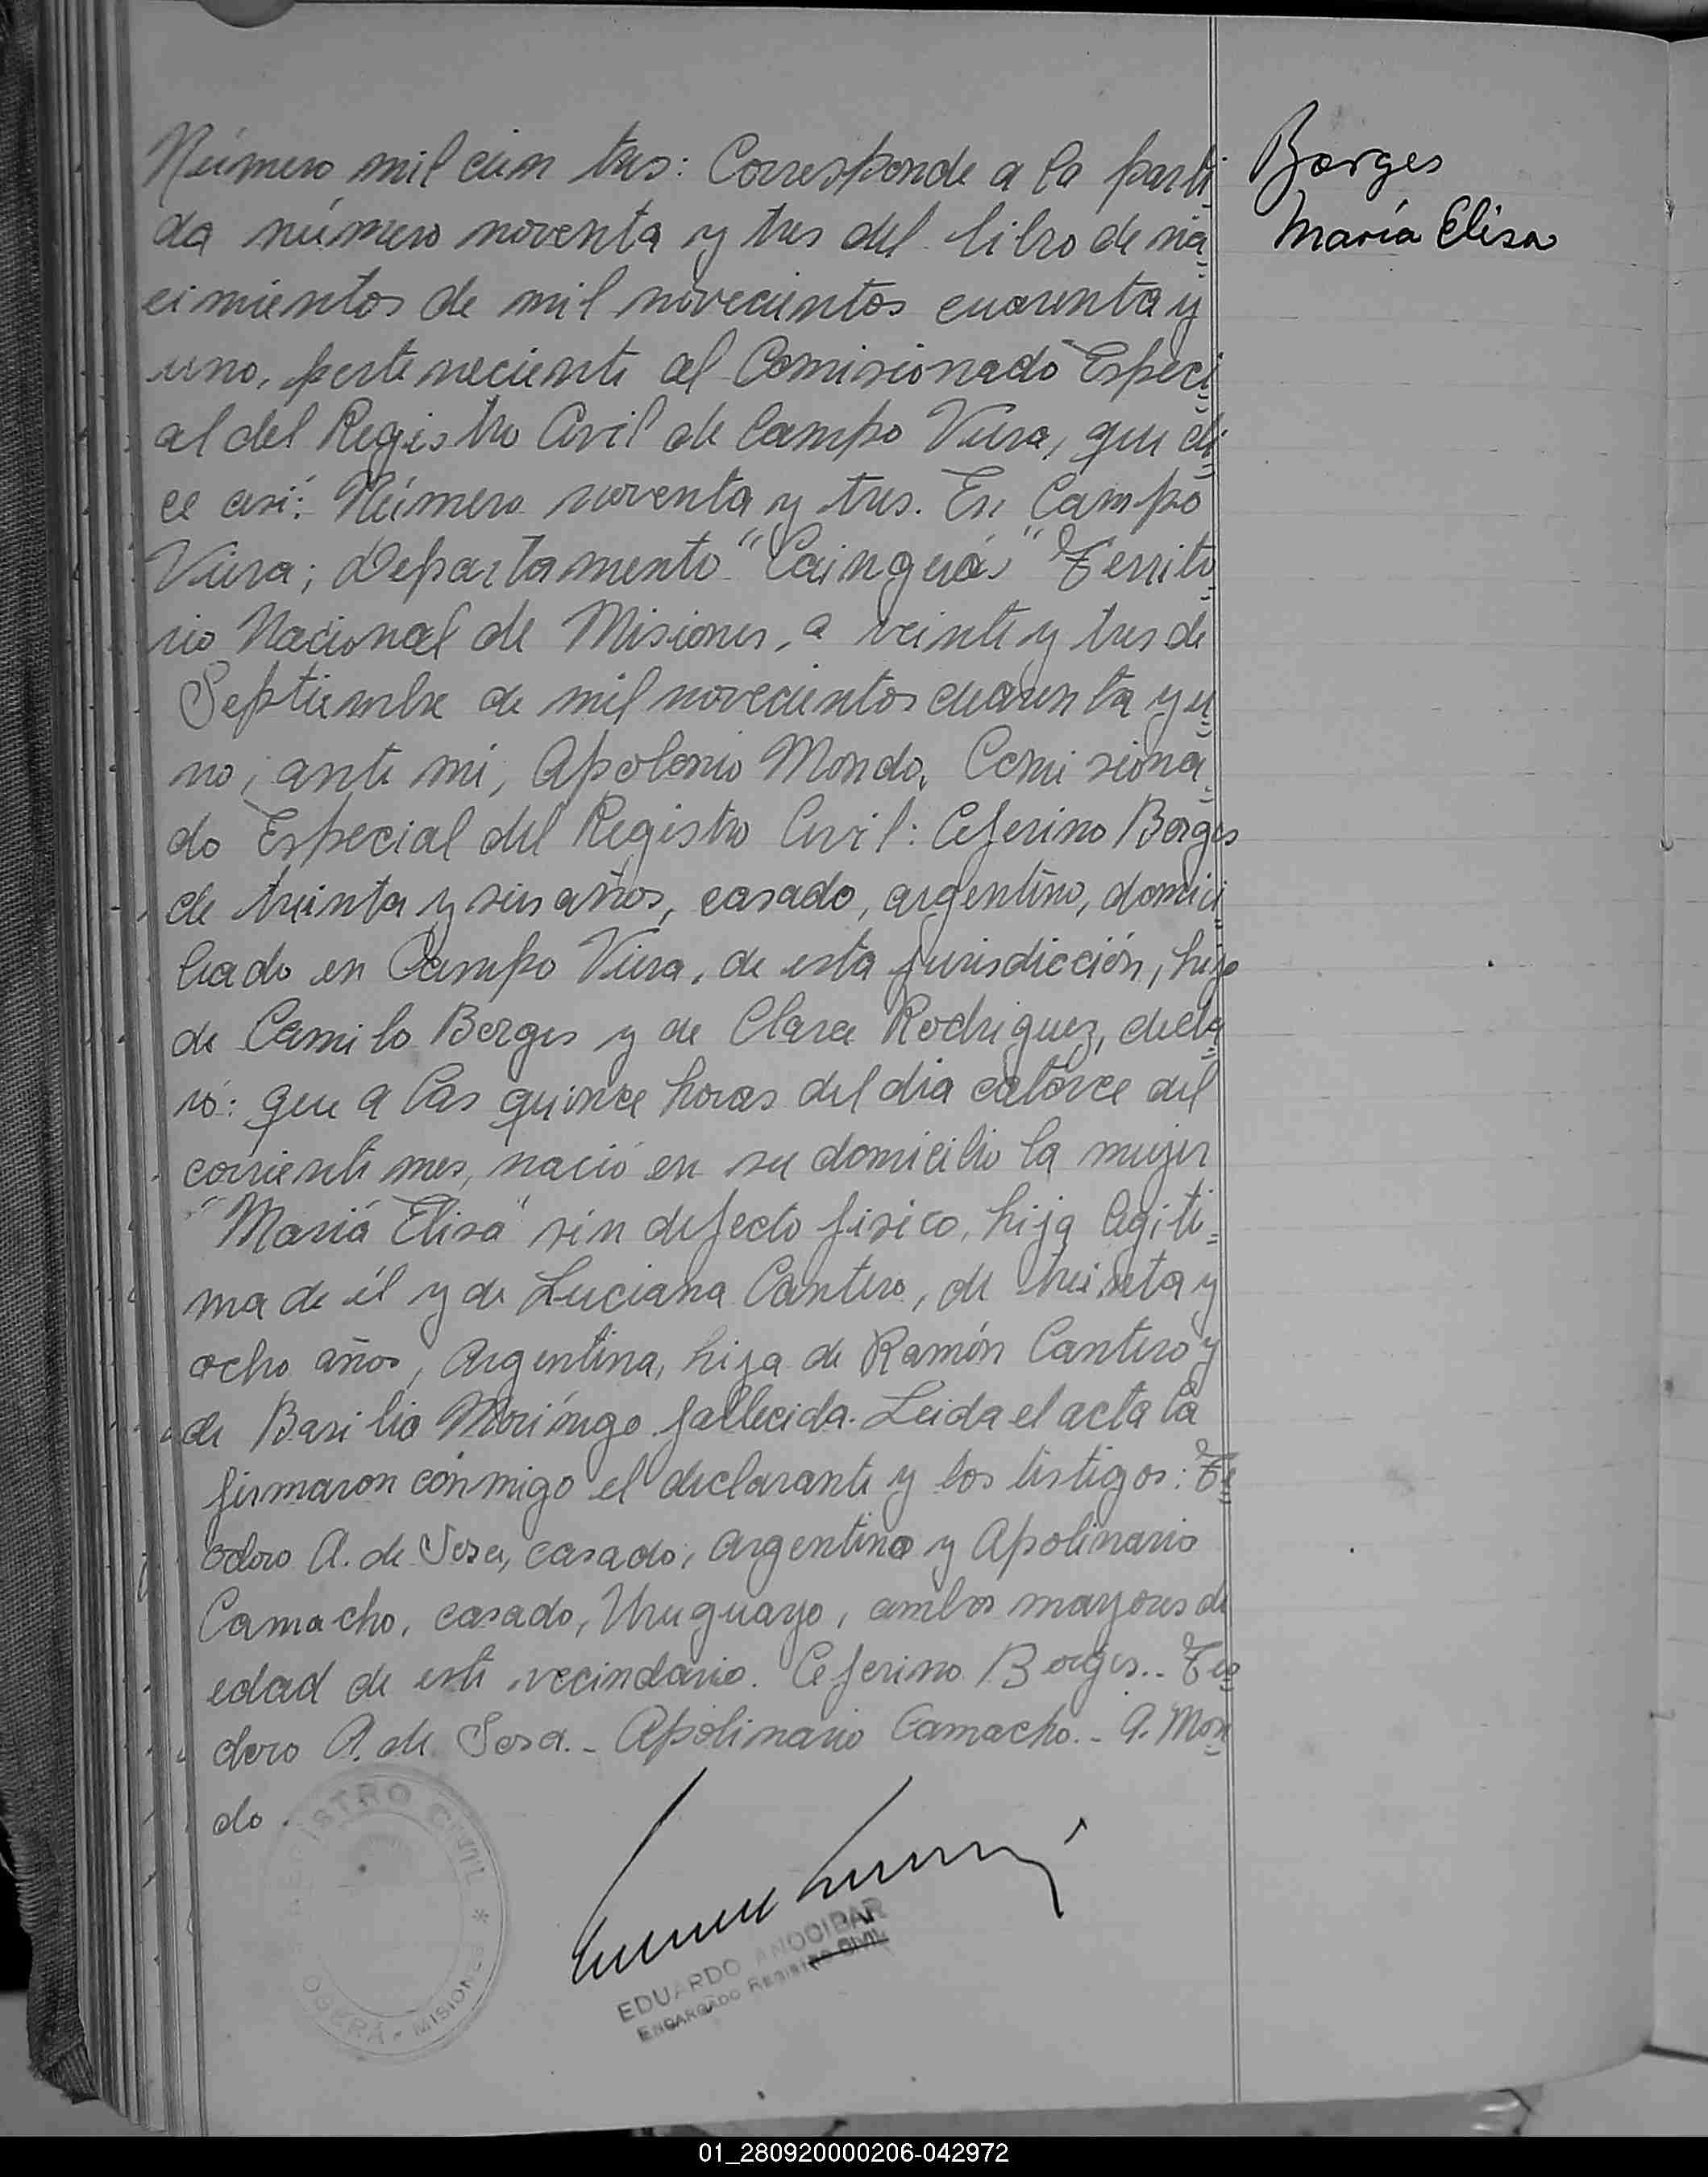 Número mil cien tres: Corresponde a la parti
da número noventa y tres del libro de na
cimientos de mil novecientos cuarenta y
uno, perteneciente al Comisionado Especi
al del Registro Civil de Campo Viera, que di
ce así: Número noventa y tres. En Campo
Viera; Departamento "Cainguás" Territo
rio Nacional de Misiones, a veinte y tres de
Septiembre de mil novecientos cuarenta y u
no; ante mi, Apolonio Mondo, Comisiona
do Especial del Registro Civil: Ceferino Borges
de treinta y seis años, casado, argentino, domici
liado en Campo Viera, de esta jurisdicción, hijo
de Camilo Borges y de Clara Rodriguez, decla
ró: que a las quince horas del dia catorce del
corriente mes, nació en su domicilio la mujer
"María Elisa" sin defecto fisico, hija legiti=
ma de él y de Luciana Cantero, de treinta y
ocho años, Argentina, hija de Ramón Cantero y
de Basilia Moringo fallecida. Leida el acta la
firmaron conmigo el declarante y los testigos: Te
odoro A. de Sosa, casado, argentino y Apolinario
Camacho, casado, Uruguayo, ambos mayores de
edad de este vecindario. Ceferino Borges.- Teo
doro A. de Sosa.- Apolinario Camacho.- A. Mon
do.
Borges
María Elisa
REGISTRO CIVIL *
OBERÁ - MISIONES
EDUARDO ANOCIBAR
ENCARGADO REGISTRO CIVIL
01_280920000206-042972